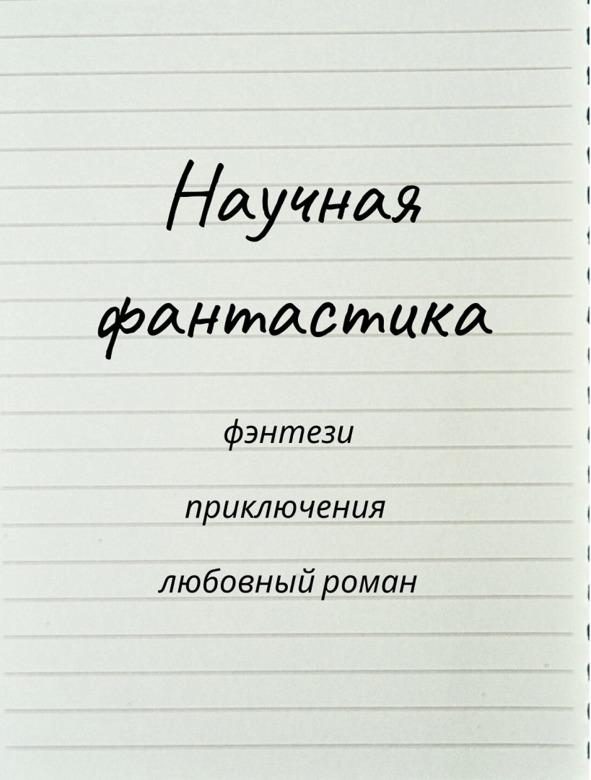 Научная
фантастика
фэнтези
приключения
любовный роман